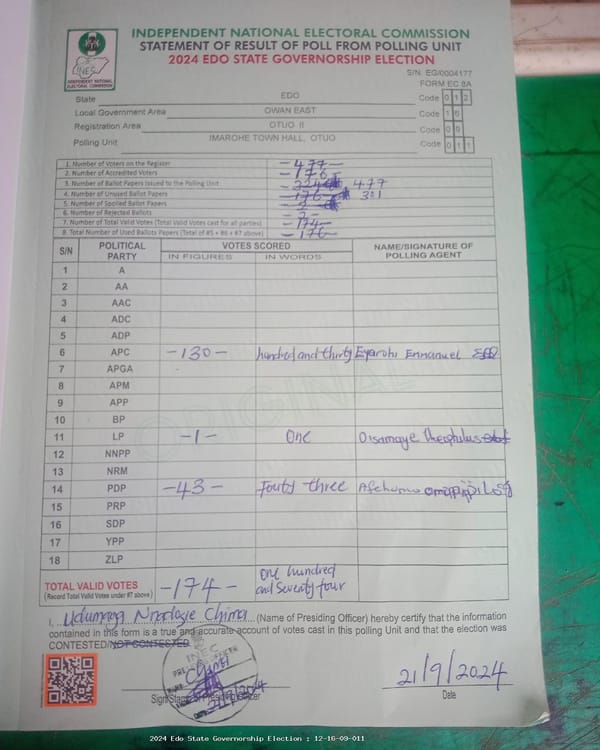 INDEPENDENT NATIONAL ELECTORAL COMMISSION
STATEMENT OF RESULT OF POLL FROM POLLING UNIT
2024 EDO STATE GOVERNORSHIP ELECTION
INEC
INDEPENDENT NATIONAL ELECTORAL COMMISSION
S/N: EG/0004177
FORM EC 8A
State EDO Code 0 1 2
Local Government Area OWAN EAST Code 1 6
Registration Area OTUO II Code 0 9
Polling Unit IMAROHE TOWN HALL, OTUO Code 0 1 1
1. Number of Voters on the Register -477-
2. Number of Accredited Voters -176-
3. Number of Ballot Papers Issued to the Polling Unit 477
4. Number of Unused Ballot Papers -176- 301
5. Number of Spoiled Ballot Papers
6. Number of Rejected Ballots -2-
7. Number of Total Valid Votes (Total Valid Votes cast for all parties) -174-
8. Total Number of Used Ballots Papers (Total of #5 + #6 + #7 above) -176-
S/N POLITICAL PARTY VOTES SCORED NAME/SIGNATURE OF POLLING AGENT
IN FIGURES IN WORDS
1 A
2 AA
3 AAC
4 ADC
5 ADP
6 APC -130- hundred and thirty Eyarohi Emmanuel
7 APGA
8 APM
9 APP
10 BP
11 LP -1- One Oisamaye Theophilus
12 NNPP
13 NRM
14 PDP -43- Fourty three
15 PRP
16 SDP
17 YPP
18 ZLP
ORIGINAL
TOTAL VALID VOTES -174- One hundred and Seventy four
(Record Total Valid Votes under #7 above)
I, Chima (Name of Presiding Officer) hereby certify that the information
contained in this form is a true and accurate account of votes cast in this polling Unit and that the election was
CONTESTED/NOT CONTESTED
INEC
21/9/2024
21/9/2024
Date
2024 Edo State Governorship Election : 12-16-09-011